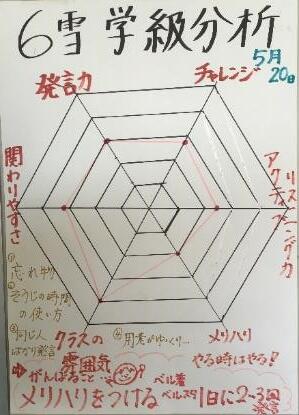 6雪 学級分析
5月
20日
発言力
チャレンジ
関わりやすさ
アクティブ
リスニング力
クラスの
雰囲気
メリハリ
やる時はやる!
① 忘れ物
② そうじの時間
の使い方
③ 同じ人
ばかり発言
④ 用意がゆっくり…
がんばること
ベル着
メリハリをつける
ベルスタ
1日に2~3回
発言